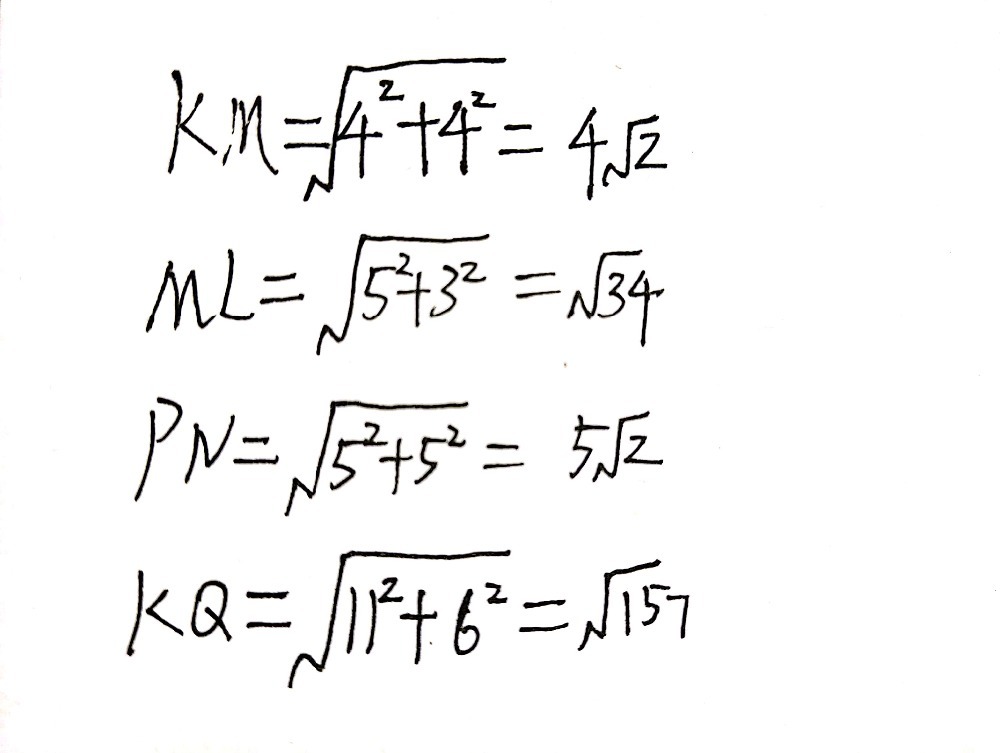 KM=√(4²+4²)=4√2
ML=√(5²+3²)=√34
PN=√(5²+5²)=5√2
KQ=√(11²+6²)=√157